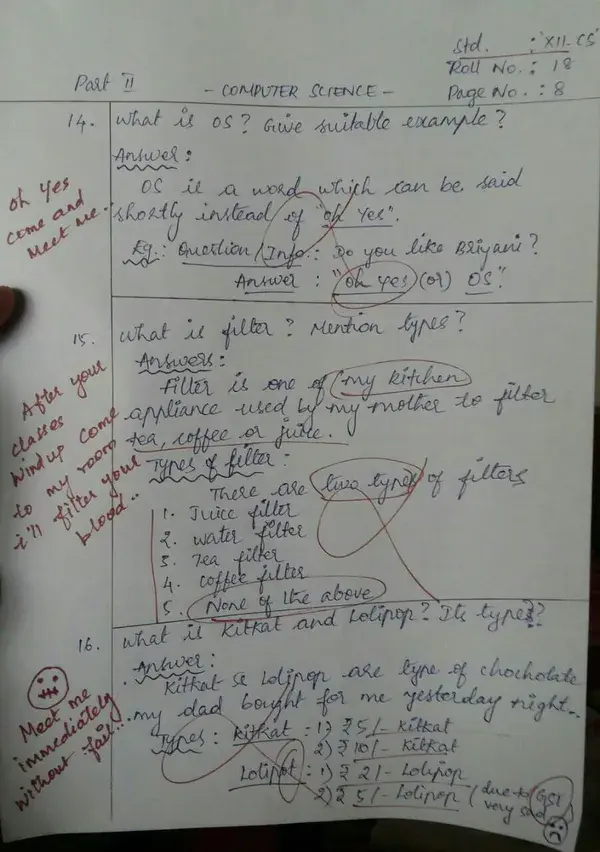 Std. : XII-CS
Roll No. : 18
Part II - COMPUTER SCIENCE - Page No. : 8
14. What is OS? Give suitable example?
Answer :
OS is a word which can be said
shortly instead of "oh Yes".
Eg.: Question / Info.: Do you like Briyani?
Answer : "oh yes (or) OS"
oh Yes
come and
Meet me..
15. What is filter? Mention types?
Answers :
Filter is one of my kitchen
appliance used by my mother to filter
tea, coffee or juice.
Types of filter :
There are two types of filters
1. Juice filter
2. water filter
3. Tea filter
4. coffee filter
5. None of the above
After your
classes
windup come
to my room
i'll filter your
blood..
16. What is Kitkat and Lolipop? Its types??
Answer :
Kitkat & Lolipop are type of chocholate
my dad bought for me yesterday night..
Types : Kitkat : 1) ₹ 5/- Kitkat
2) ₹ 10/- Kitkat
Lolipot : 1) ₹ 2/- Lolipop
2) ₹ 5/- Lolipop (due to GST
very sad
Meet me
immediately
without fail...